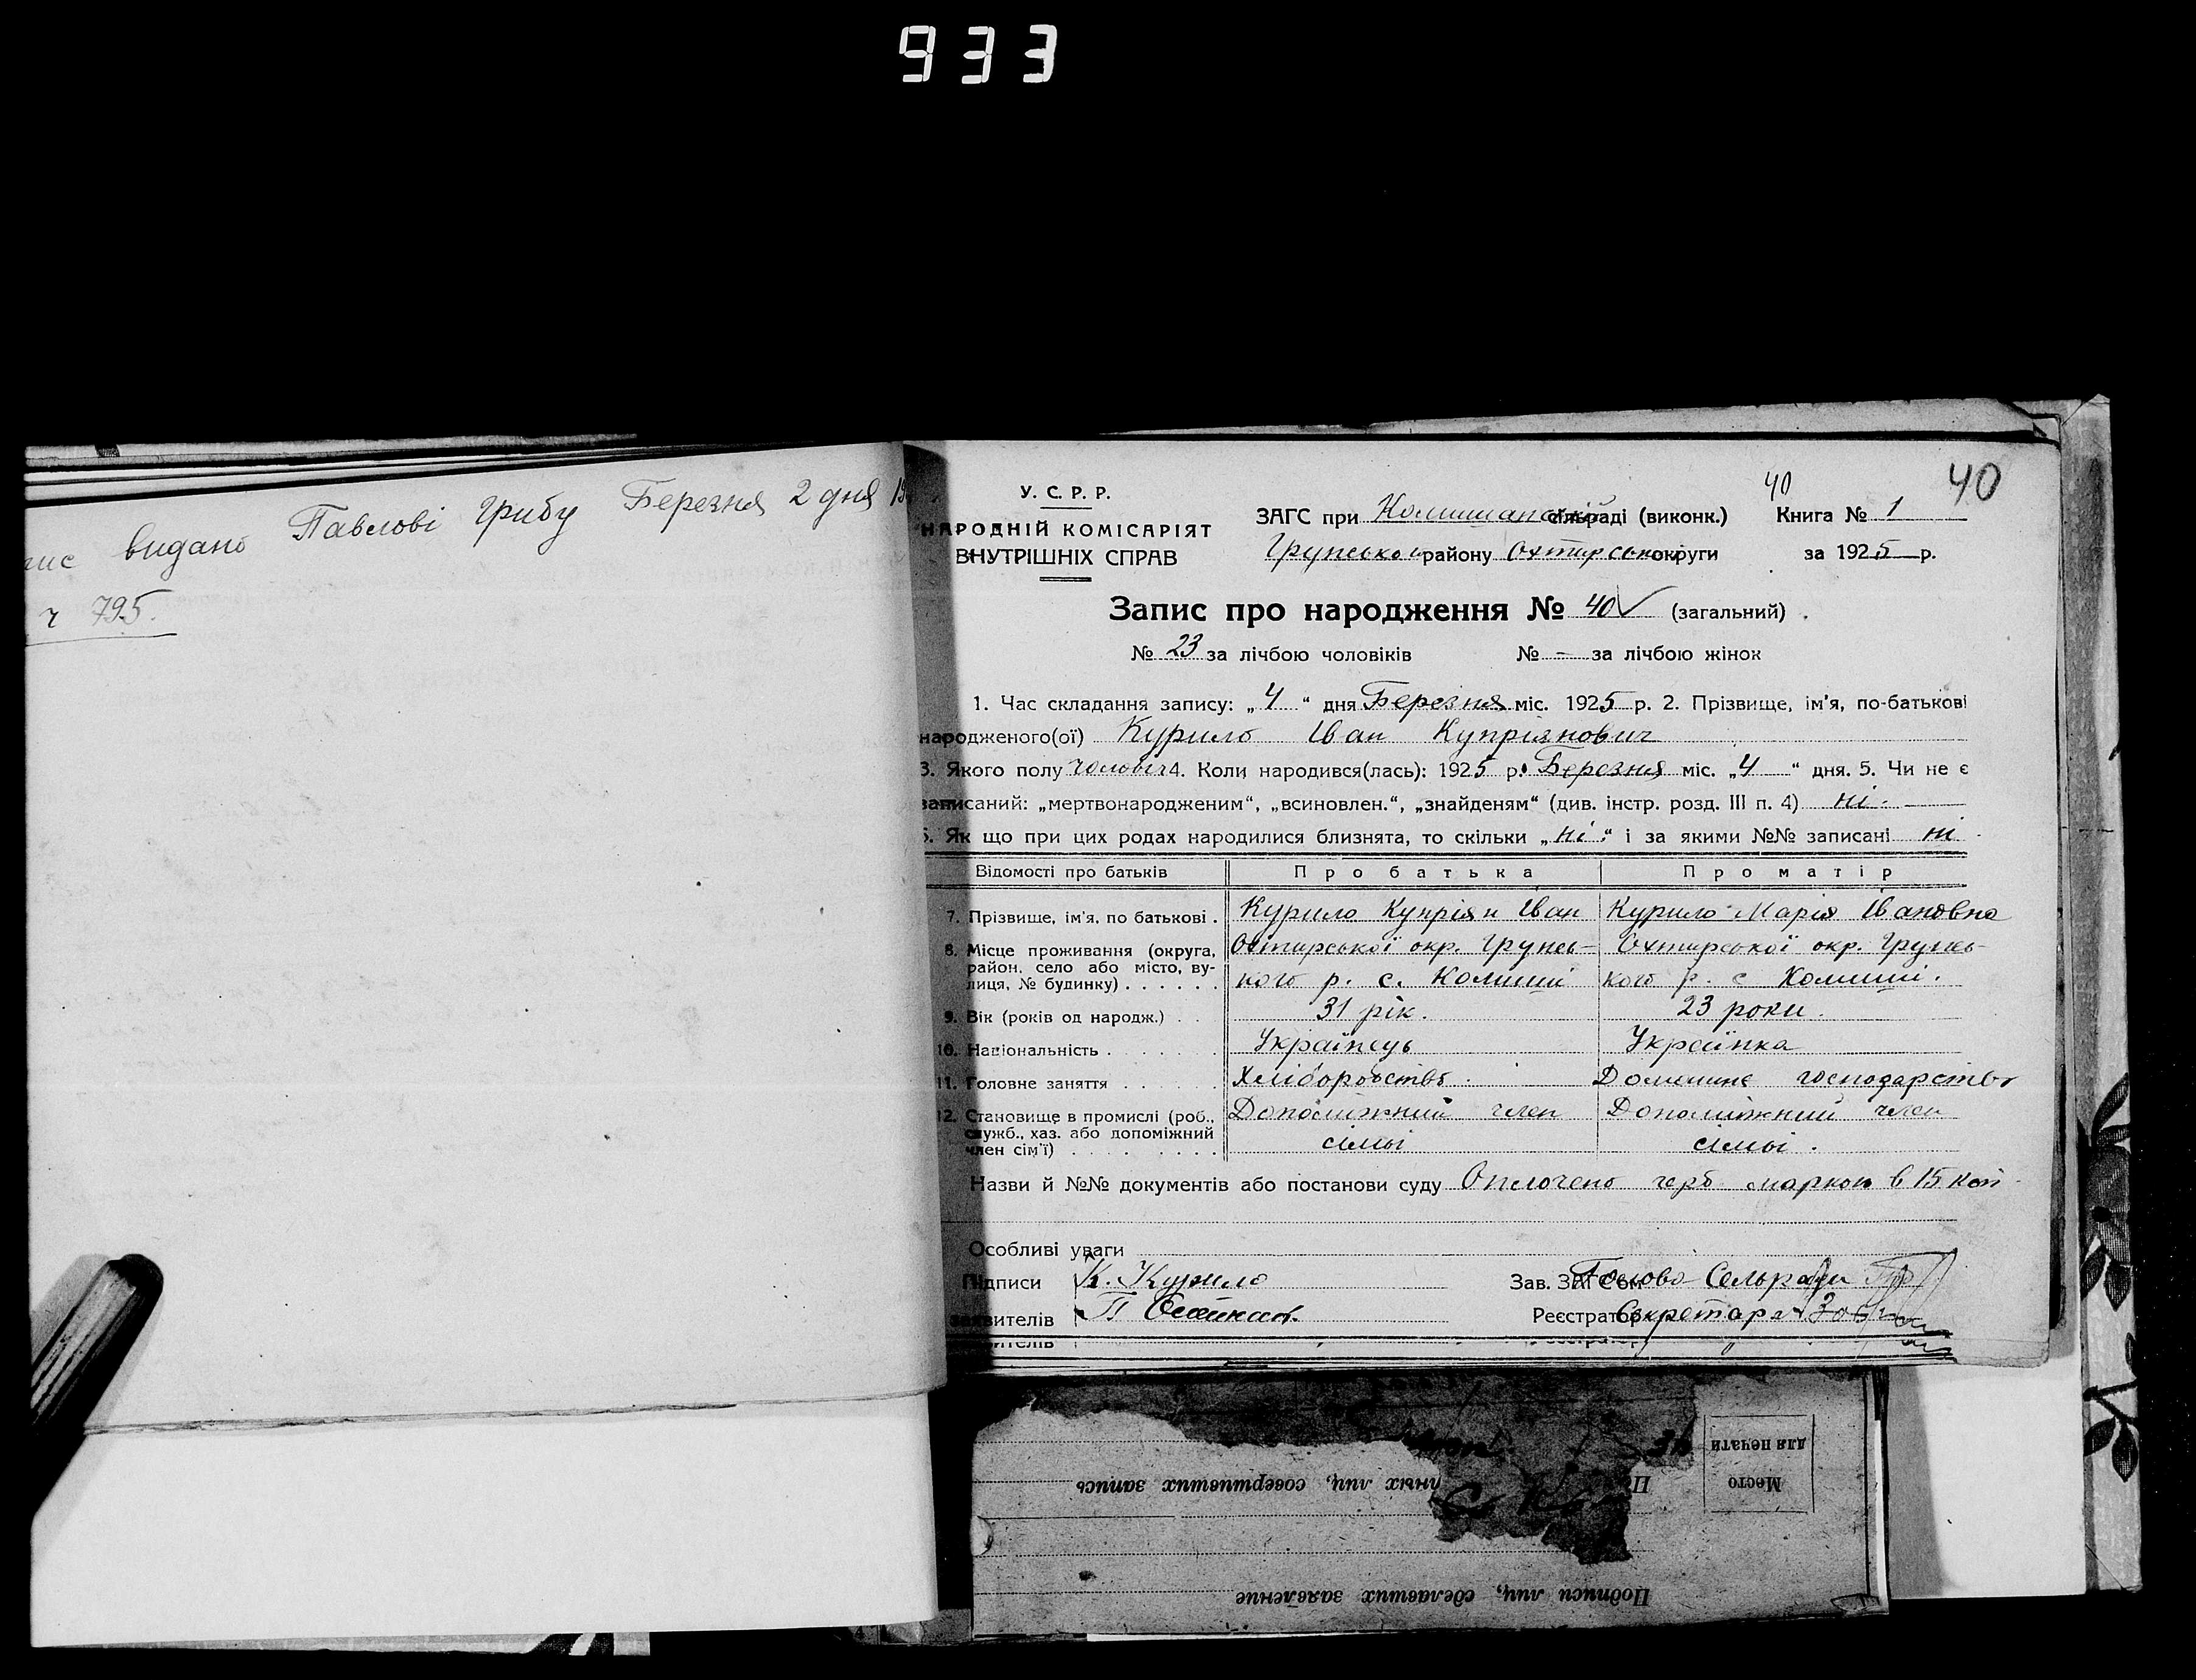 933
видано Павлові Грибу Березня 2 дня
ч 795.
40
40
У. С. Р. Р.
НАРОДНІЙ КОМІСАРІЯТ
ВНУТРІШНІХ СПРАВ
ЗАГС при Комишанській сільраді (виконк.) Книга № 1
Грунського району Охтирської округи за 1925 р.
Запис про народження № 40 (загальний)
№ 23 за лічбою чоловіків № – за лічбою жінок
1. Час складання запису: „4“ дня Березня міс. 1925 р. 2. Прізвище, ім'я, по-батькові
народженого(ої) Курило Іван Купріянович
3. Якого полу чоловіч 4. Коли народився(лась): 1925 р. Березня міс. „4“ дня. 5. Чи не є
записаний: „мертвонародженим“, „всиновлен.“, „знайденям“ (див. інстр. розд. III п. 4) ні.
6. Як що при цих родах народилися близнята, то скільки „ні“ і за якими №№ записані ні
Відомості про батьків Про батька Про матір
7. Прізвище, ім'я, по батькові . Курило Купріян Іван Курило Марія Івановна
8. Місце проживання (округа, Охтирської окр. Грунсь- Охтирської окр. Грунсь-
район, село або місто, ву-
лиця, № будинку) . . . . . . кого р. с. Комиші кого р. с Комиші.
9. Вік (років од народж.) . . 31 рік. 23 роки.
10. Національність . . . . . . . Українець Украінка
11. Головне заняття . . . . . . Хліборобство. Домашнє господарство
12. Становище в промислі (роб., Допоміжний член Допоміжний член
служб., хаз. або допоміжний сімьі сімьі.
член сім'ї) . . . . . . . . .
Назви й №№ документів або постанови суду Оплочено герб маркою в 15 коп
Особливі уваги
Підписи К. Курило Зав. ЗАГС'ом Голова Сельради
заявителів П Реєстратор Секретарь
вителів
Место
для печати
ных лиц, совершивших запись
Подписи лиц, сделавших заявление